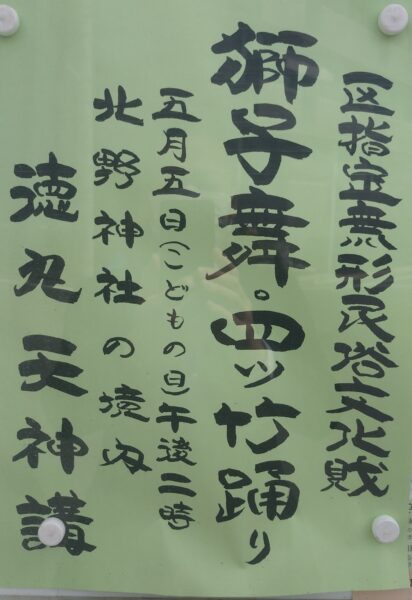 区指定無形民俗文化財
獅子舞・四ツ竹踊り
五月五日(こどもの日)午後二時
北野神社の境内
徳丸天神講